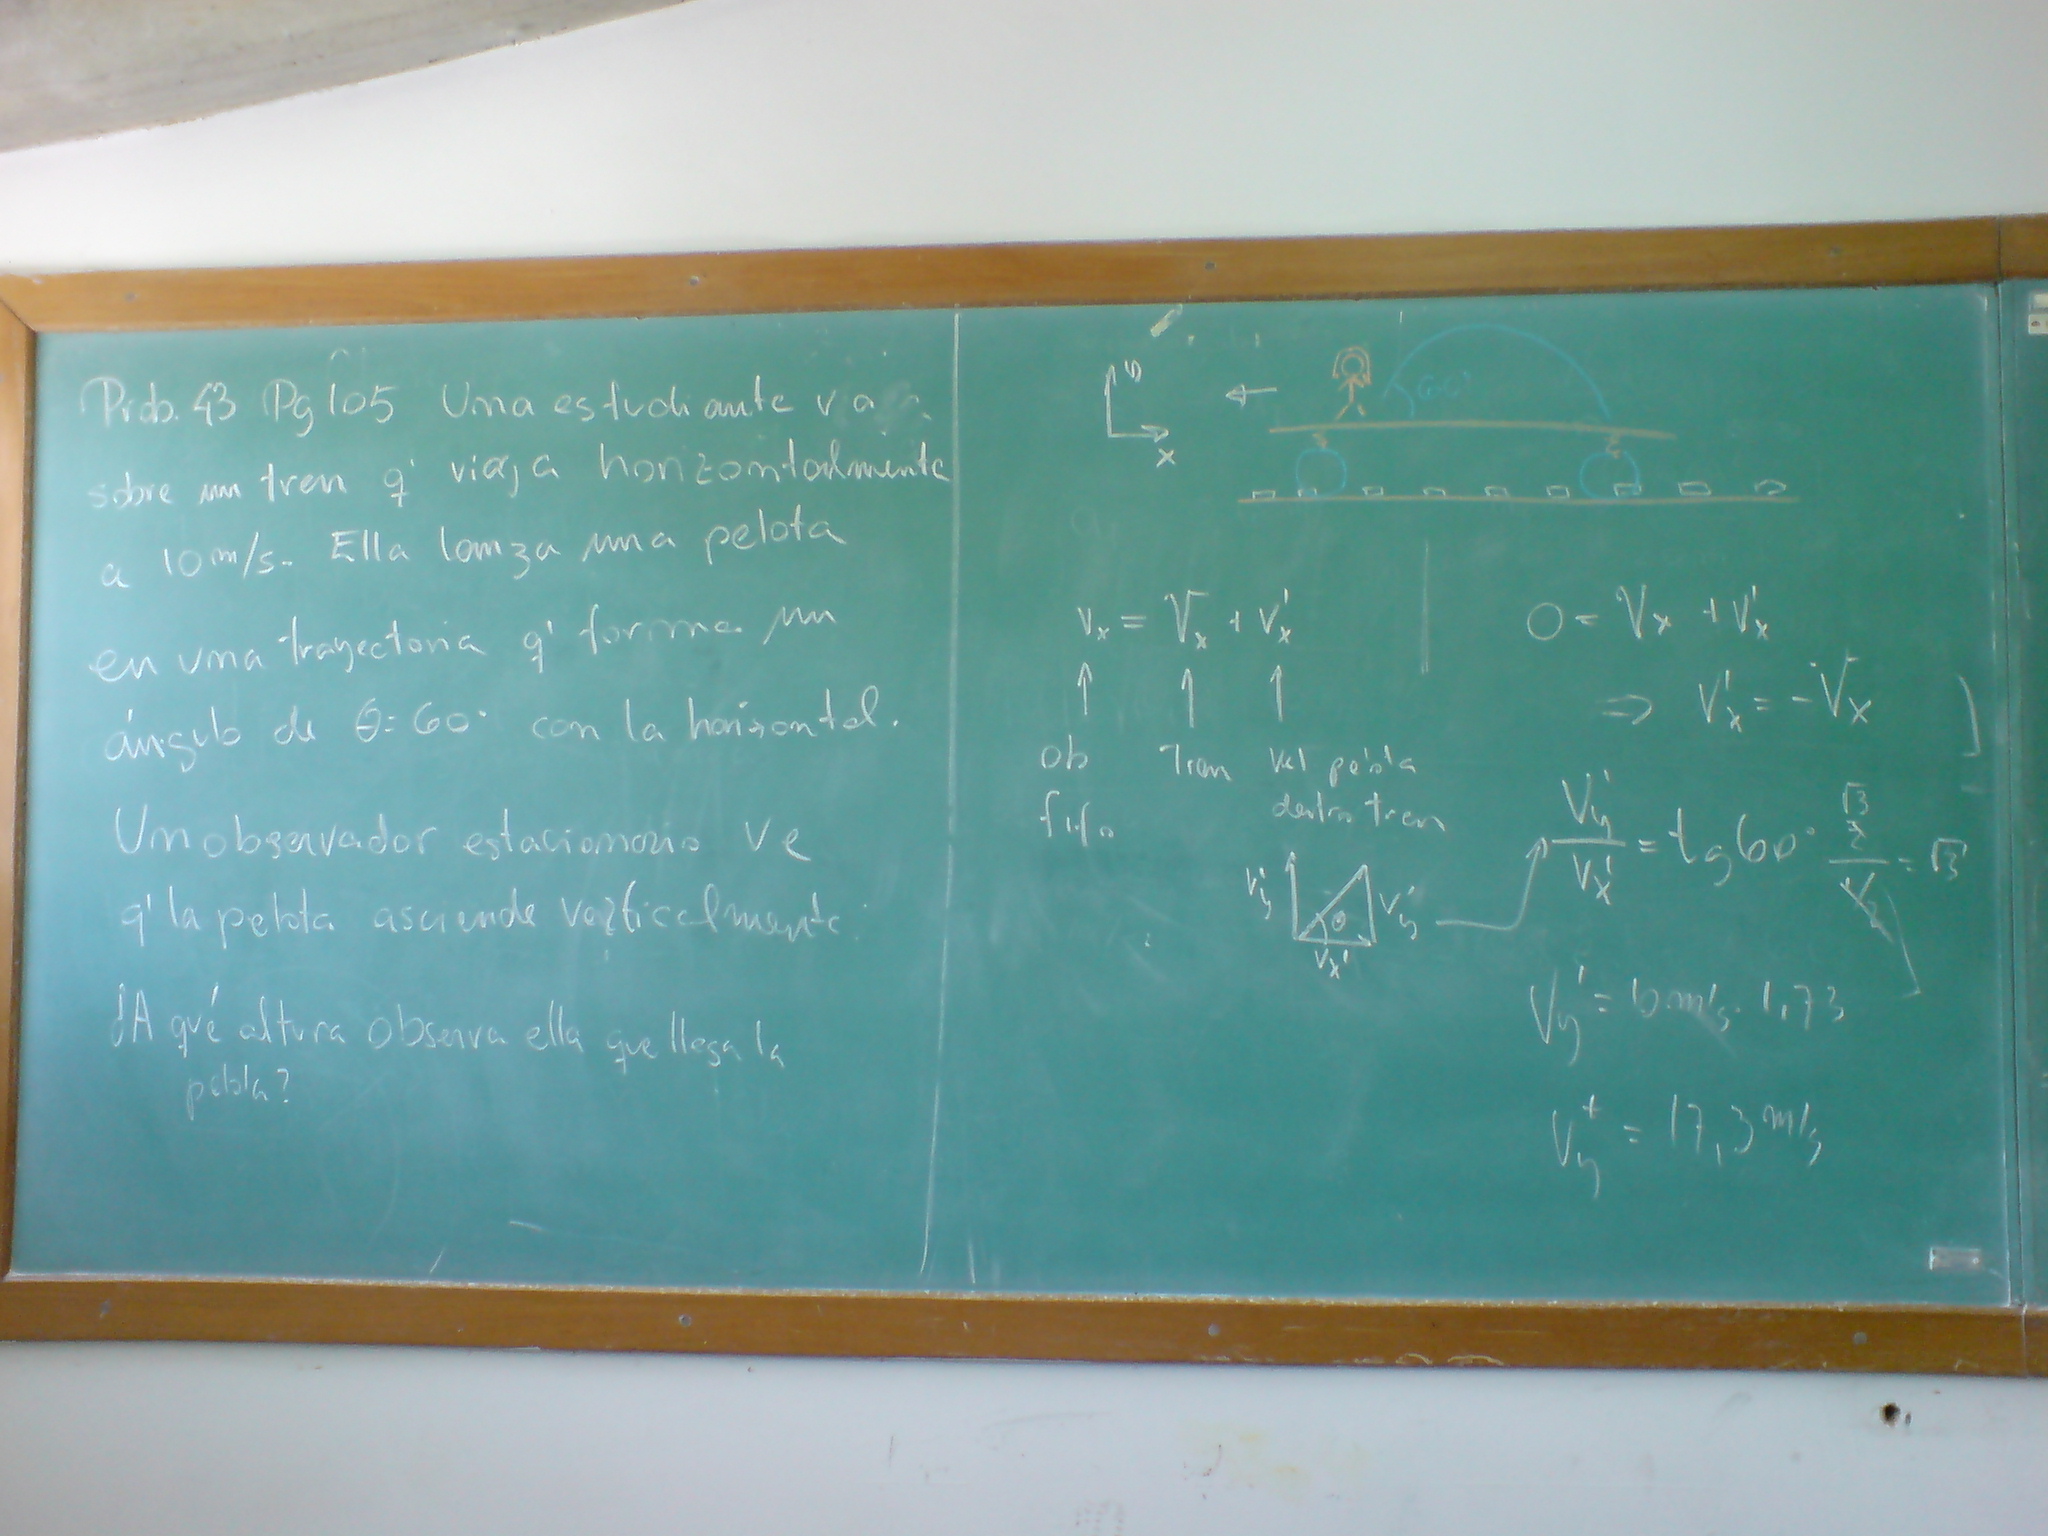 Prob. 43 Pg 105 Una estudiante va
sobre un tren q' viaja horizontalmente
a 10 m/s. Ella lanza una pelota
en una trayectoria q' forma un
ángulo de θ=60° con la horizontal.
Un observador estacionario ve
q' la pelota asciende verticalmente.
¿A qué altura observa ella que llega la
pelota?
y
x
60°
Vx = Vx + Vx'
ob Tren Vel pelota
fijo dentro tren
Vy' θ Vy'
Vx'
0 = Vx + Vx'
⇒ Vx' = -Vx
Vy'/Vx' = tg 60° (√3/2)/(1/2) = √3
Vy' = 10 m/s · 1,73
Vy' = 17,3 m/s